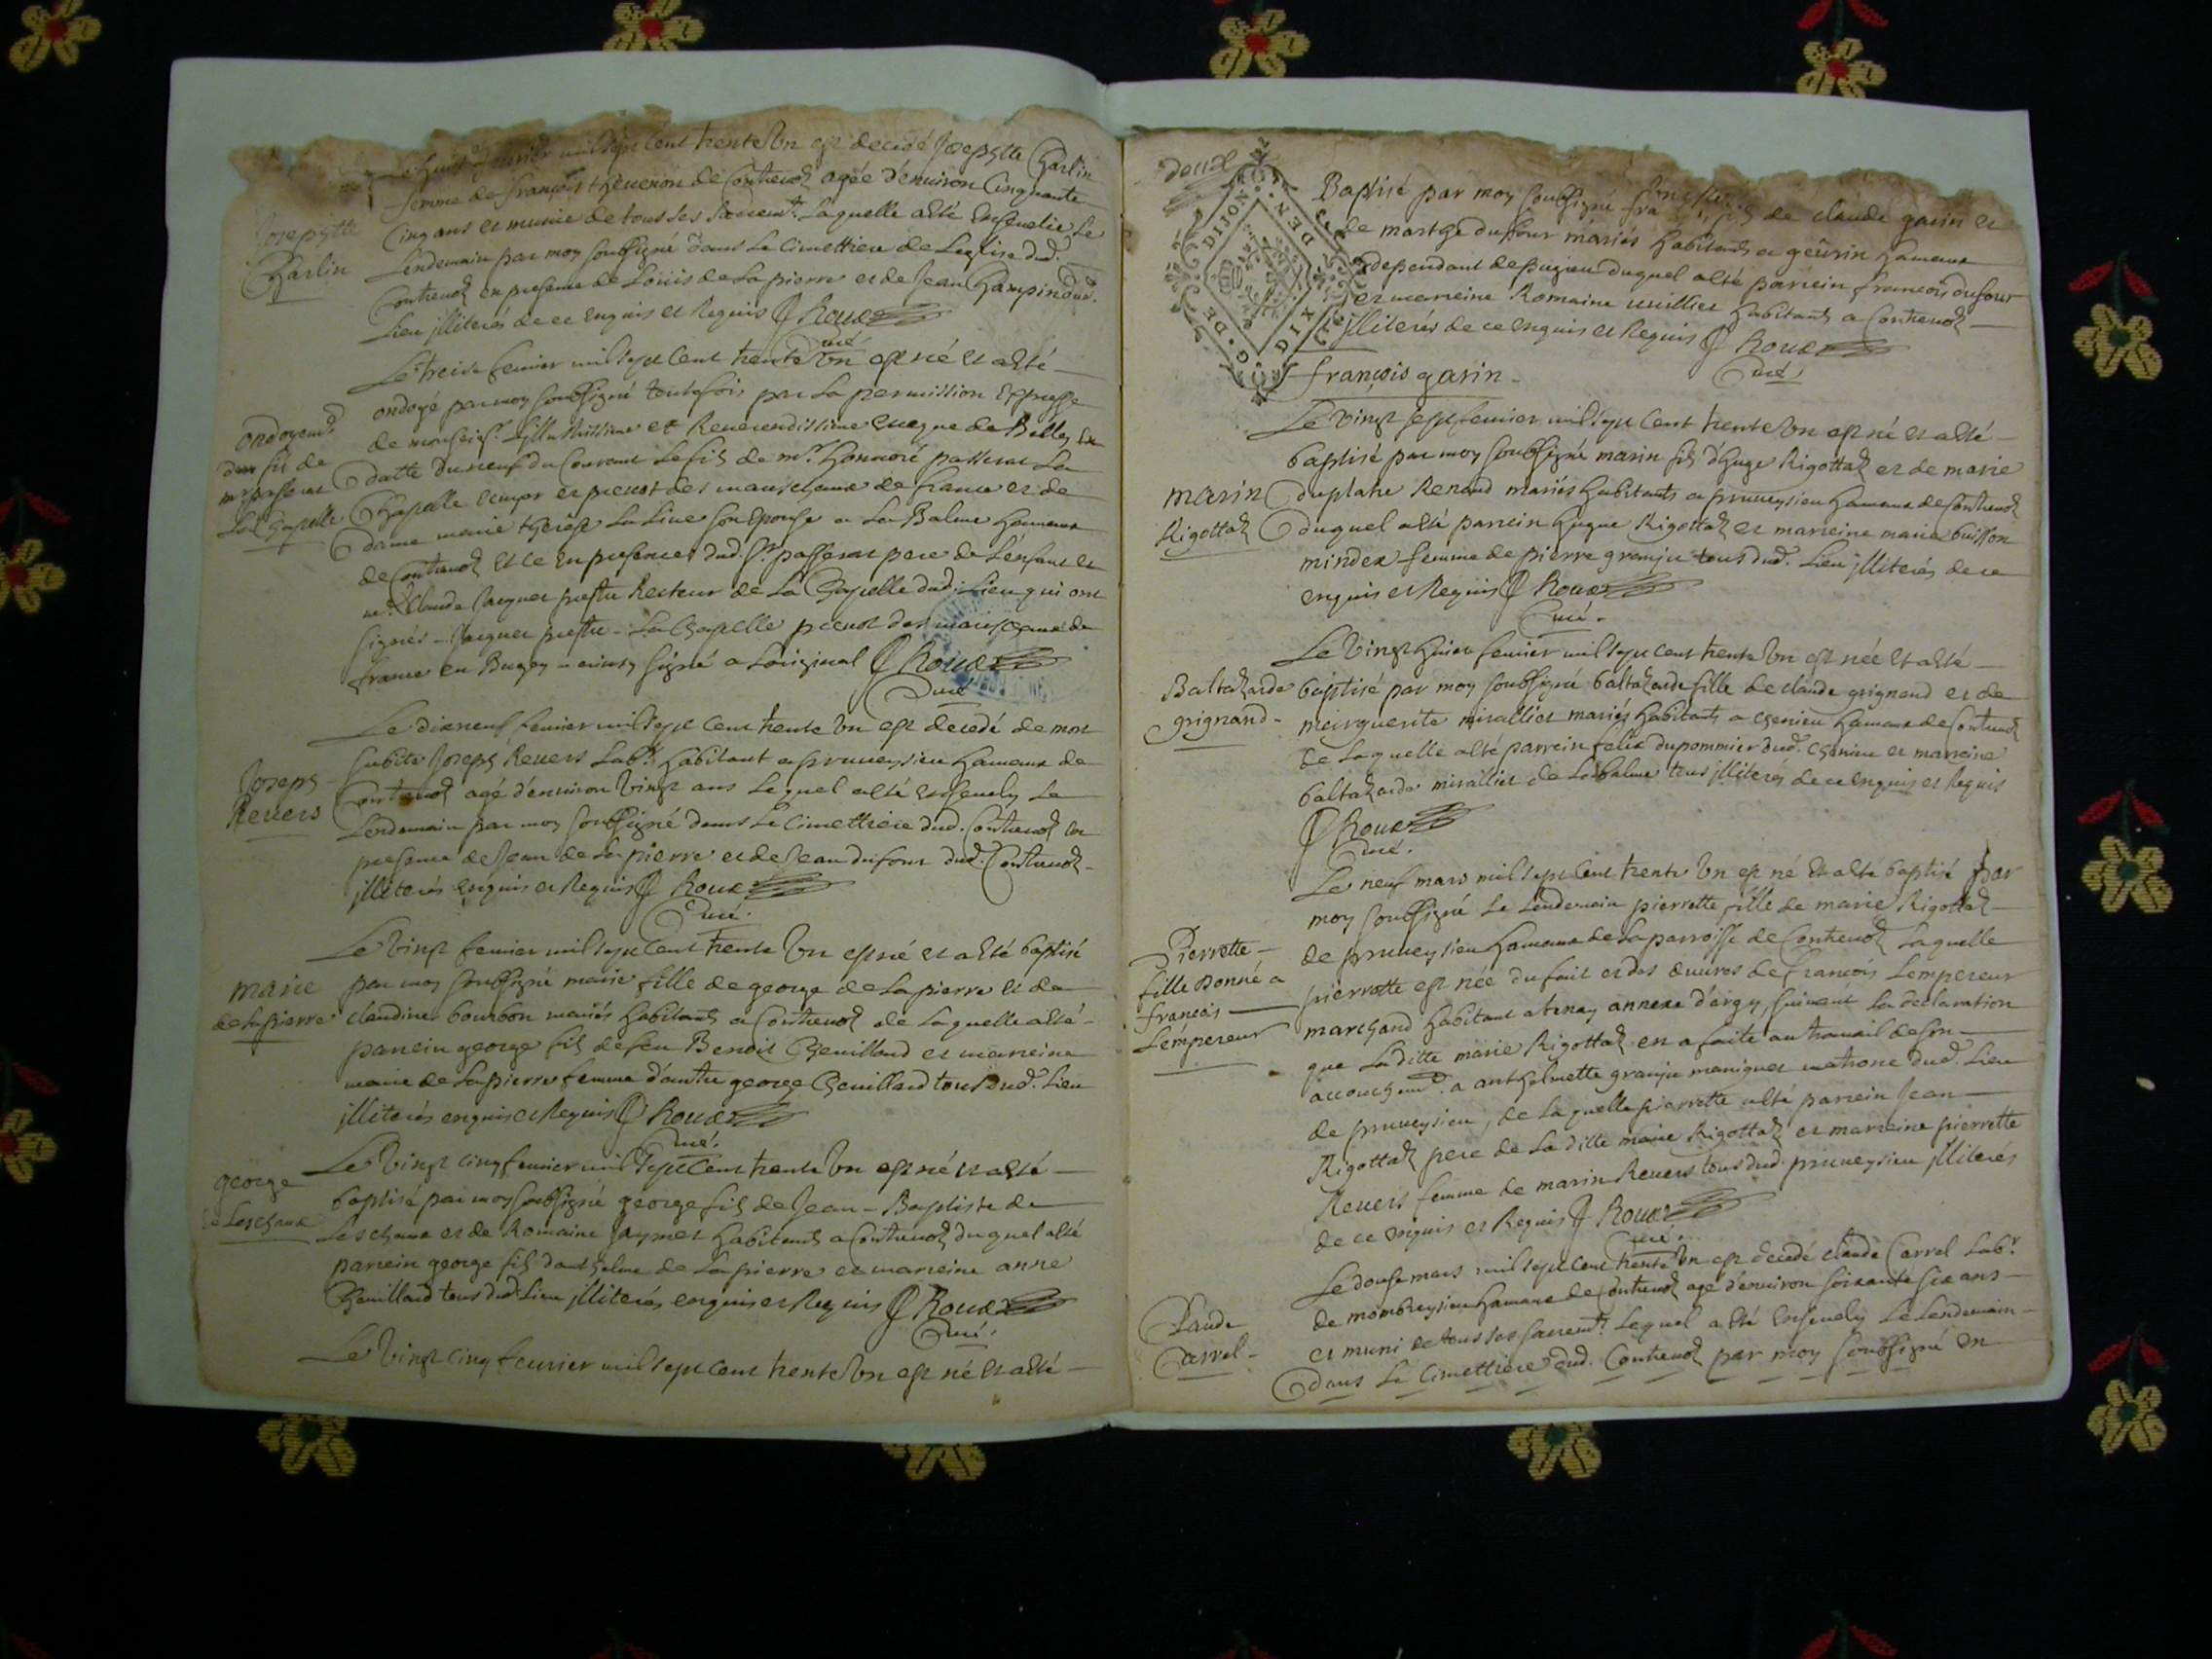 Le huit feuvrier mil sept cent trente un est decedé Josephte Charlin
femme de françois theuenon de Contreuoz agée d'enuiron Cinquante
Cinq ans et munie de tous ses sacrem.ts Laquelle a été Enseuelie Le
Josephte
Charlin
Lendemain par moy soubsigné dans Le Cimettiere de Leglise dud.
Contreuoz en presence de Loüis de La pierre et de Jean Champin dud.
Lieu jlliterés de ce enquis et Requis J Roux
Curé
Le treise feurier mil sept cent trente un est né et a été
ondoyé par moy soubsigné toutefois par La permission Expresse
de monseig.r Lillustrissime et Reuerendissime euesque de Belley En
datte du neuf du Courant Le fils de m.r Honnoré passerat La
Chapelle escuyer et preuost des mareschaux de france et de
ondoyem.t
d'un fils de
m.r passerat
La Chapelle
dame marie therese La Liue son Epouse a La Balme hameau
de Contreuoz et ce En presences dud. S.r passerat pere de L'enfant et
m.re Claude Jacquet prestre Recteur de La Chapelle dud. Lieu qui ont
signés - Jacquet prestre - La Chapelle preuost des mareschaux de
france en Bugey - ainsy signé a Loriginal J Roux
Curé
Le dixneuf feurier mil sept cent trente un est decedé de mort
subite Joseph Reuers Lab.r habitant a pruueysieu hameau de
Joseph
Reuers
Contreuoz agé d'enuiron vingt ans Lequel a été enseuely Le
Lendemain par moy soubsigné dans Le Cimettiere dud. Contreuoz en
presence de Jean de La pierre et de Jean dufour dud. Contreuoz
jlliterés enquis et Requis J Roux
Curé.
Le vingt feurier mil sept cent trente un est né et a été baptisé
marie
de La pierre
par moy soubsigné marie fille de george de La pierre et de
claudine bourbon mariés habitants a Contreuoz de Laquelle a été
parrein george fils de feu Benoit Cheuilland et marreine
marie de La pierre femme d'autre george Cheuillard tous dud. Lieu
jlliterés enquis et Requis J Roux
Curé.
Le vingt cinq feurier mil sept cent trente un est né et a été
george
de Leschaux
baptisé par moy soubsigné george fils de Jean-Baptiste de
Leschaux et de Romaine Jaymet habitants a Contreuoz duquel a été
parrein george fils d'anthelme de La pierre et marreine anne
Cheuillard tous dud. Lieu jlliterés enquis et Requis J Roux
Curé.
Le vingt cinq feurier mil sept cent trente un est né et a été
doux
G. DE DIJON
Baptisé par moy soubsigné françois fils de claude garin et
de marthe dufour mariés habitants a geürin hameau
dependant de pugieu duquel a été parrein francois dufour
et marreine Romaine habitants a Contreuoz
jlliterés de ce enquis et Requis J Roux
Curé.
françois garin
Le vingt sept feurier mil sept cent trente un est né et a été
baptisé par moy soubsigné marin fils d'huge Rigottaz et de marie
marin
Rigottaz
duplatre Renand mariés habitants a pruueysieu hameau de Contreuoz
duquel a été parrein hugue Rigottaz et marreine marie buisson
mindex femme de pierre granju tous dud. Lieu jlliterés de ce
enquis et Requis J Roux
Curé.
Le vingt huict feurier mil sept cent trente un est née et a été
Baltazarde
grignand
baptisé par moy soubsigné baltazarde fille de claude grignand et de
marguerite mirallier mariés habitants a chenieu hameau de Contreuoz
de Laquelle a été parrein felix dupommier dud. chenieu et marreine
baltazarde mirallier de La balme tous jlliterés de ce enquis et Requis
J Roux
Curé.
Le neuf mars mil sept cent trente un est né et a été baptisé par
moy soubsigné Le Lendemain pierrette fille de marie Rigottaz
de pruueysieu hameau de La parroisse de Contreuoz Laquelle
Pierrette
fille donné a
françois
Lempereur
pierrette est née du fait et des œuures de francois Lempereur
marchand habitant a tenay annexe d'argy, suiuant La declaration
que Laditte marie Rigottaz en a faite au trauail de son
accouchem.t a anthelmette granju maniguet matrone dud. Lieu
de pruueysieu, de Laquelle pierrette a été parrein Jean
Rigottaz pere de La ditte marie Rigottaz et marreine pierrette
Reuers femme de marin Reuers tous dud. pruueysieu jlliterés
de ce enquis et Requis J Roux
Curé.
Le douse mars mil sept cent trente un est decedé claude Carrel Lab.r
de mombreysieu hameau de Contreuoz agé d'enuiron soixante six ans
Claude
Carrel
et muni de tous ses sacrem.ts Lequel a été Enseuely Le Lendemain
dans Le Cimettiere dud. Contreuoz par moy soubsigné en